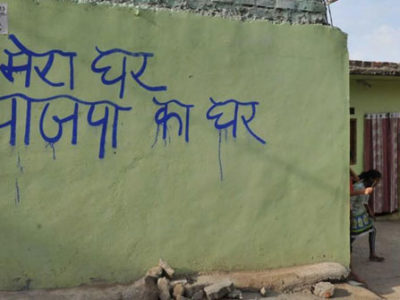 मेरा घर
भाजपा का घर